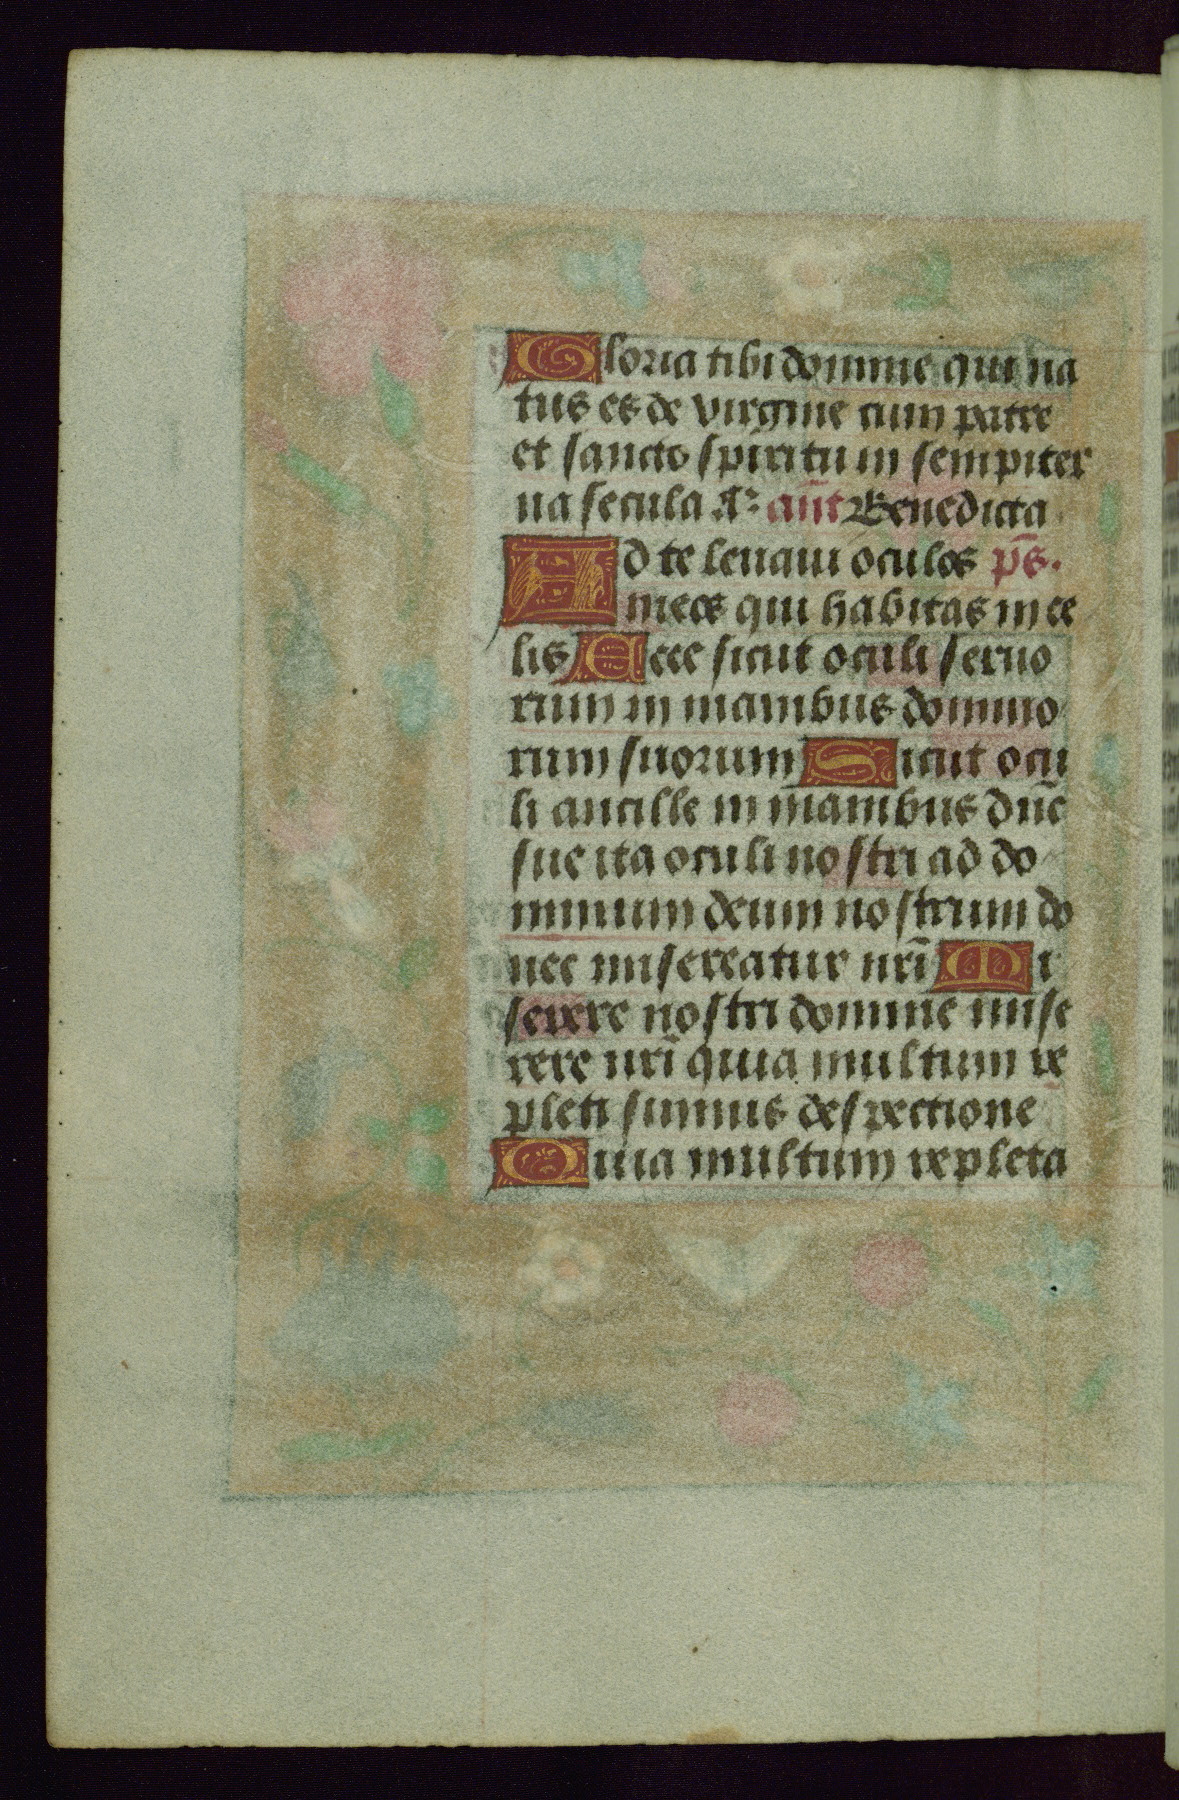 Gloria tibi domine qui na
tus es de virgine cum patre
et sancto spiritu in sempiter
na secula A: añt Benedicta
Ad te levavi oculos p̄s.
meos qui habitas in ce
lis Ecce sicut oculi servo
rum in manibus domino
rum suorum Sicut ocu
li ancille in manibus dñe
sue ita oculi nostri ad do
minum deum nostrum do
nec misereatur nr̄i Mi
serere nostri domine mise
rere nr̄i quia multum re
pleti sumus despectione
Quia multum repleta